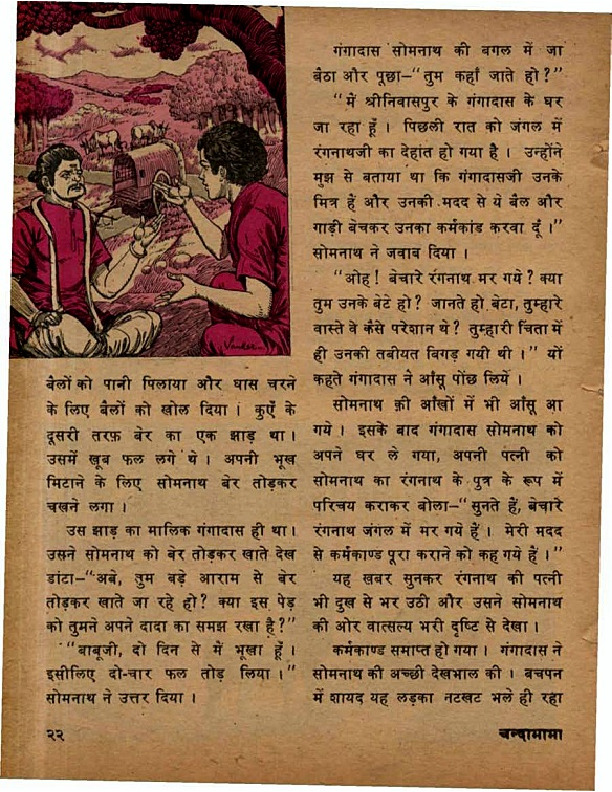 Vanker
बैलों को पानी पिलाया और घास चरने
के लिए बैलों को खोल दिया । कुएँ के
दूसरी तरफ़ बेर का एक झाड़ था ।
उसमें खूब फल लगे थे । अपनी भूख
मिटाने के लिए सोमनाथ बेर तोड़कर
चखने लगा ।
उस झाड़ का मालिक गंगादास ही था ।
उसने सोमनाथ को बेर तोड़कर खाते देख
डांटा–“अबे, तुम बड़े आराम से बेर
तोड़कर खाते जा रहे हो? क्या इस पेड़
को तुमने अपने दादा का समझ रखा है?”
“बाबूजी, दो दिन से में भूखा हूँ ।
इसीलिए दो-चार फल तोड़ लिया ।”
सोमनाथ ने उत्तर दिया ।
गंगादास सोमनाथ की बगल में जा
बैठा और पूछा–“तुम कहाँ जाते हो?”
“में श्रीनिवासपुर के गंगादास के घर
जा रहा हूँ । पिछली रात को जंगल में
रंगनाथजी का देहांत हो गया है । उन्होंने
मुझ से बताया था कि गंगादासजी उनके
मित्र हैं और उनकी मदद से ये बैल और
गाड़ी बेचकर उनका कर्मकांड करवा दूँ ।”
सोमनाथ ने जवाब दिया ।
“ओह! बेचारे रंगनाथ मर गये? क्या
तुम उनके बेटे हो? जानते हो बेटा, तुम्हारे
वास्ते वे कैसे परेशान थे? तुम्हारी चिंता में
ही उनकी तबीयत बिगड़ गयी थी ।” यों
कहते गंगादास ने आँसू पोंछ लिये ।
सोमनाथ की आँखों में भी आँसू आ
गये । इसके बाद गंगादास सोमनाथ को
अपने घर ले गया, अपनी पत्नी को
सोमनाथ का रंगनाथ के पुत्र के रूप में
परिचय कराकर बोला–“सुनते हैं, बेचारे
रंगनाथ जंगल में मर गये हैं । मेरी मदद
से कर्मकाण्ड पूरा कराने को कह गये हैं ।”
यह खबर सुनकर रंगनाथ की पत्नी
भी दुख से भर उठी और उसने सोमनाथ
की ओर वात्सल्य भरी दृष्टि से देखा ।
कर्मकाण्ड समाप्त हो गया । गंगादास ने
सोमनाथ की अच्छी देखभाल की । बचपन
में शायद यह लड़का नटखट भले ही रहा
२२
चन्दामामा